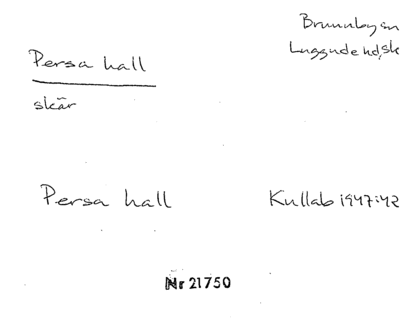 Persa hall
skär
Brunnby sn
Luggude hd, sk
Persa hall
Kullab 1947:42
Nr 21750